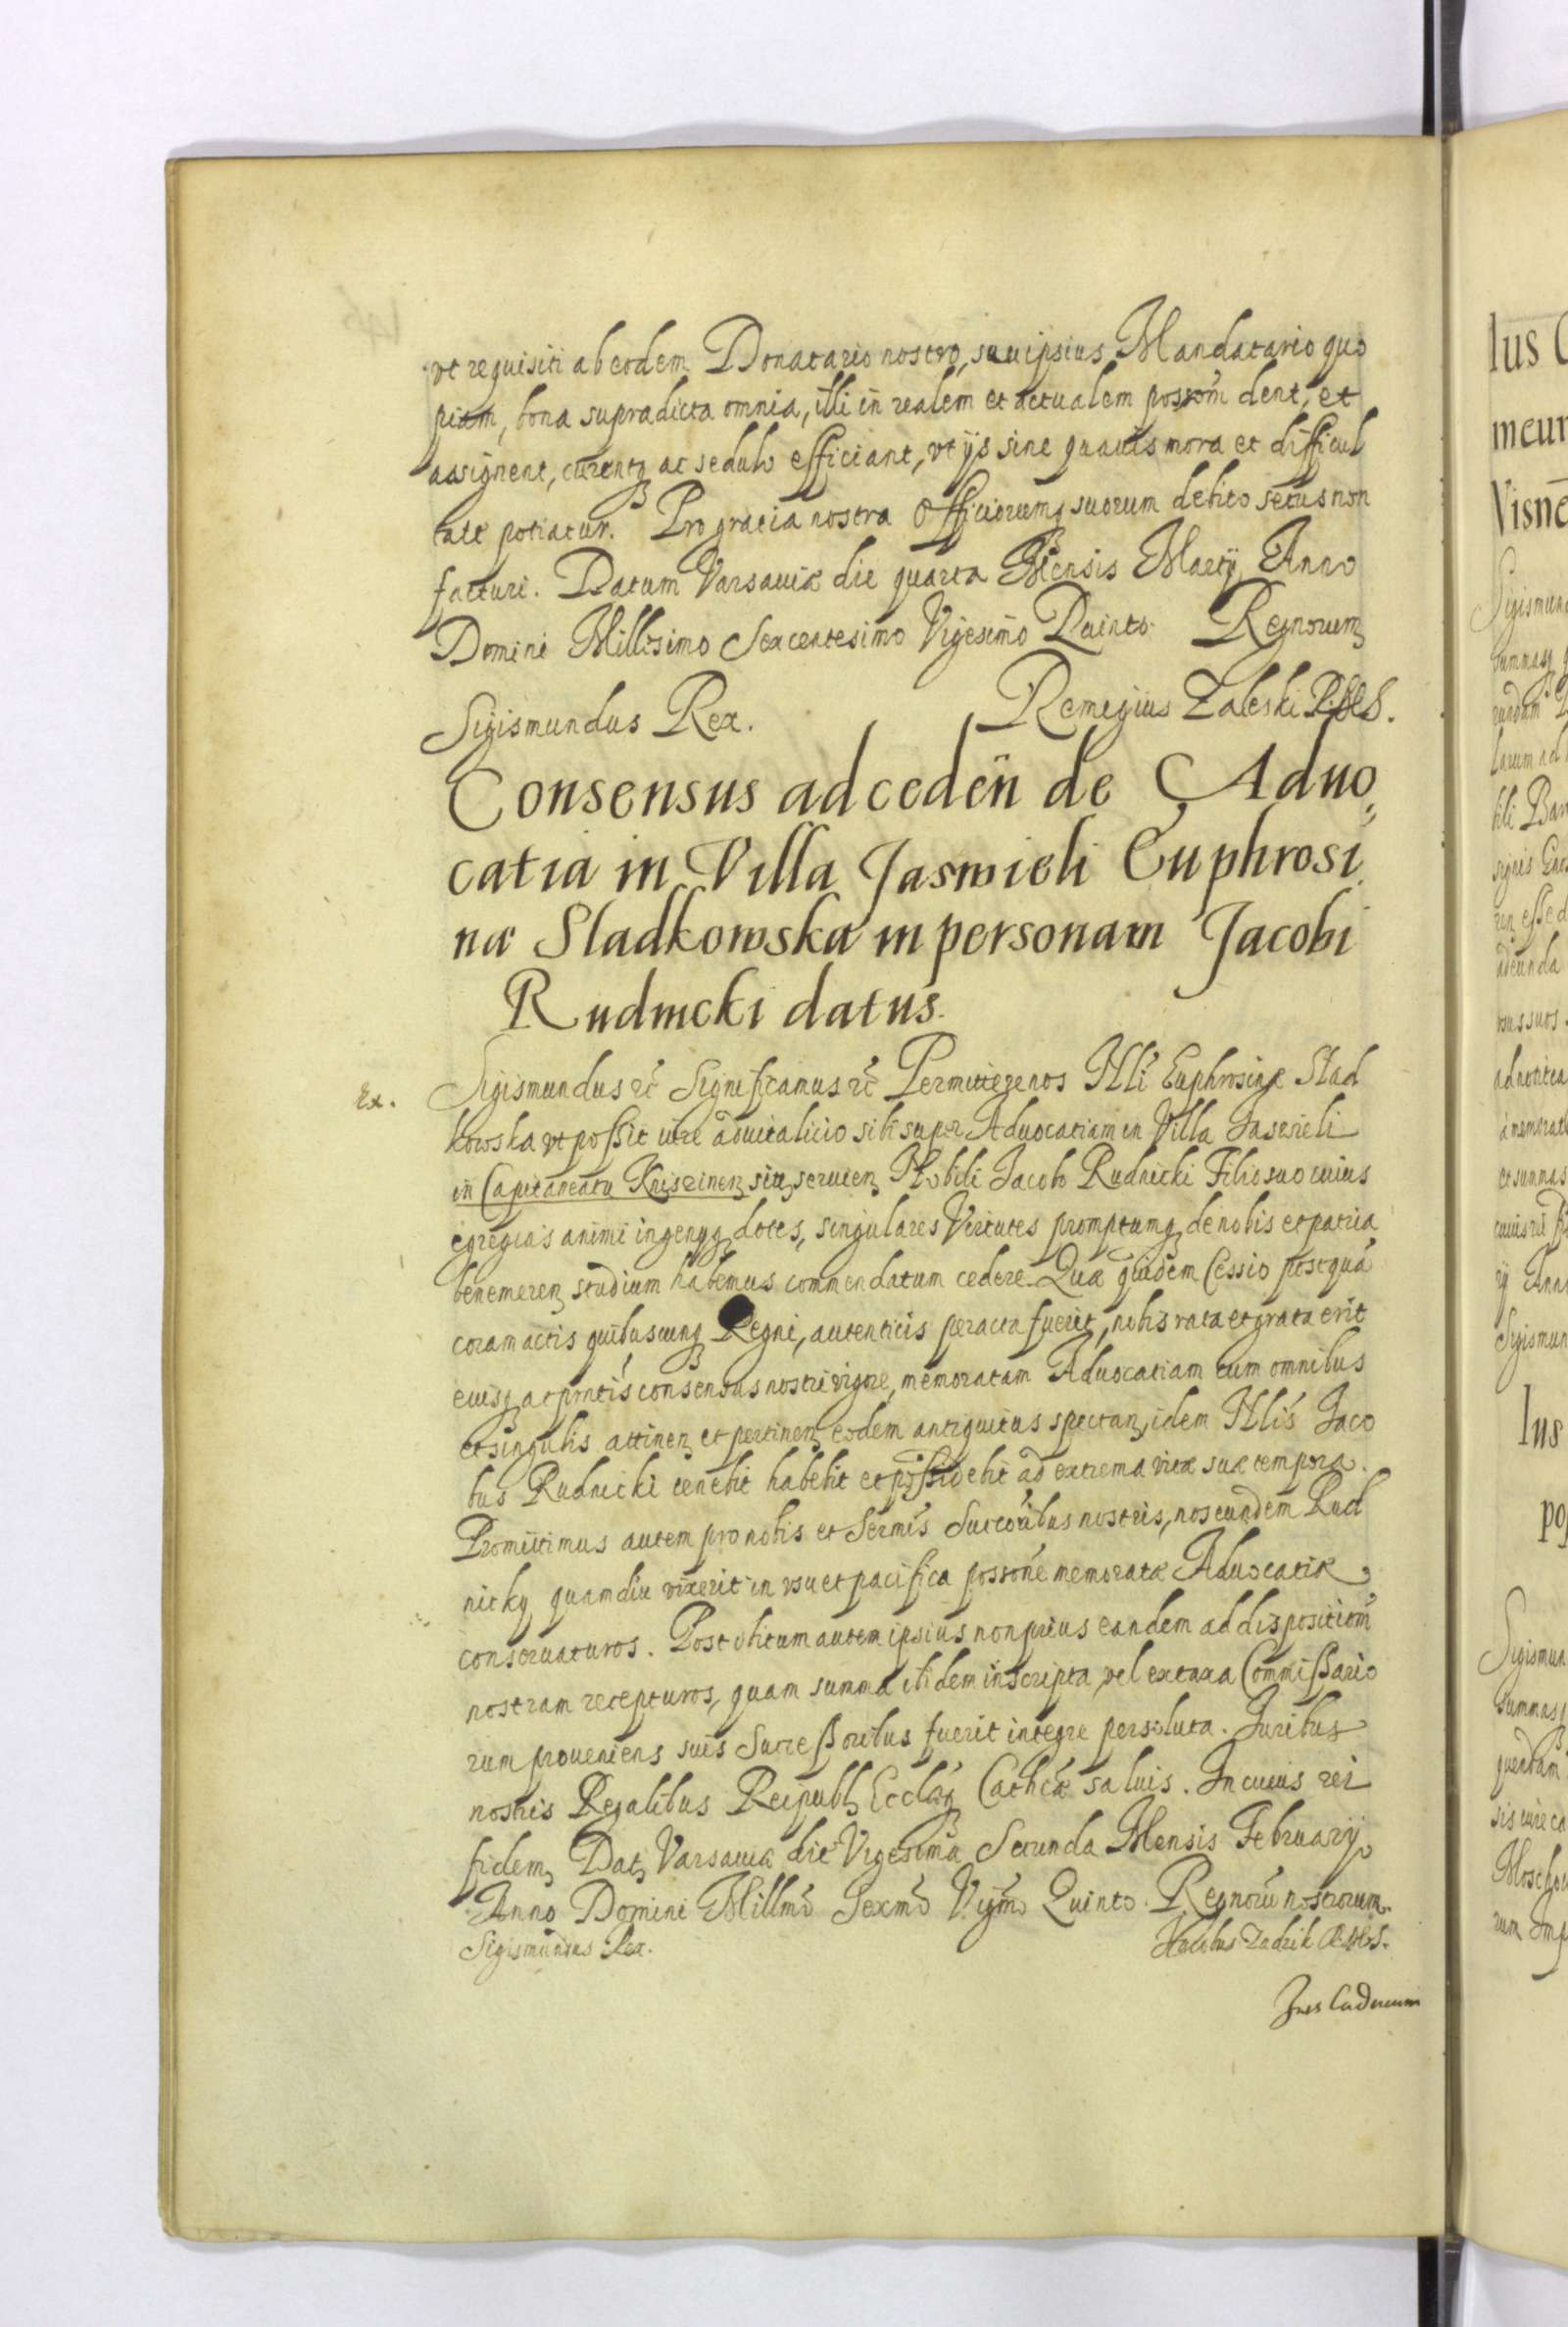 vt requisiti ab eodem Donatario nostro, seu ipsius Mandatario quo
piam, bona supradicta omnia, illi in realem et actualem possom̃ dent, et
assignent, curentq̃ ac sedulo efficiant, vt ijs sine quauis mora et difficul
tate potiatur. Pro gratia nostra Officiorumq̃ suorum debito secus non
facturi. Datum Varsauiæ die quarta Mensis Martij Anno
Domini Millesimo Sexcentesimo Vigesimo Quinto. Regnorum
Sigismundus Rex. Remigius Zaleski
Consensus ad ceden̄ de Aduo
catia in Villa Jaswieli Euphrosi
næ Sladkowska in personam Jacobi
Rudnicki datus.
Ex. Sigismundus ec̃ Significamus ec̃ Permittere nos Nb̃li Euphrosinæ Slad
kowska vt possit iure aduitalicio sibi super Aduocatiam in Villa Jaswieli
in Capitaneatu Kniszinen̄ sit̄ seruien̄ Nobili Jacobo Rudnicki Filio suo cuius
egregias animi ingenijq̃ dotes, singulares Virtutes promptumq̃ de nobis et patria
benemeren̄ studium habemus commendatum cedere. Quæ quidem Cessio postquã
coram actis quibuscunq̃ Regni, autenticis peracta fuerit, nobis rata et grata erit
eiusq̃ ac pr̃ntis consensus nostri vigore, memoratam Aduocatiam cum omnibus
et singulis attinen̄ et pertinen̄ eodem antiquitus spectan̄, idem Nb̃lis Jaco
bus Rudnicki tenebit habebit et possidebit ad extrema vitæ suæ tempora.
Promittimus autem pro nobis et Serm̃is Succoribus nostris, nos eundem Rud
nicky quamdiu vixerit in vsu et pacifica possone memoratæ Aduocatiæ
conseruaturos. Post obitum autem ipsius non prius eandem ad dispositiom̃
nostram recepturos, quam summa ibidem inscripta, vel ex taxa Commissario
rum proueniens suis Successoribus fuerit integre persoluta. Juribus
nostris Regalibus Reipubl̄ Eccl̃æq̃ Cathcæ saluis. In cuius rei
fidem, Dat̄ Varsauiæ die Vigesima Secunda Mensis Februarij
Anno Domini Millm̃o Sexm̃o Vigm̃o Quinto. Regnorũ nostrorum.
Sigismundus Rex. Jacobus Zadzik
Jus Caducum